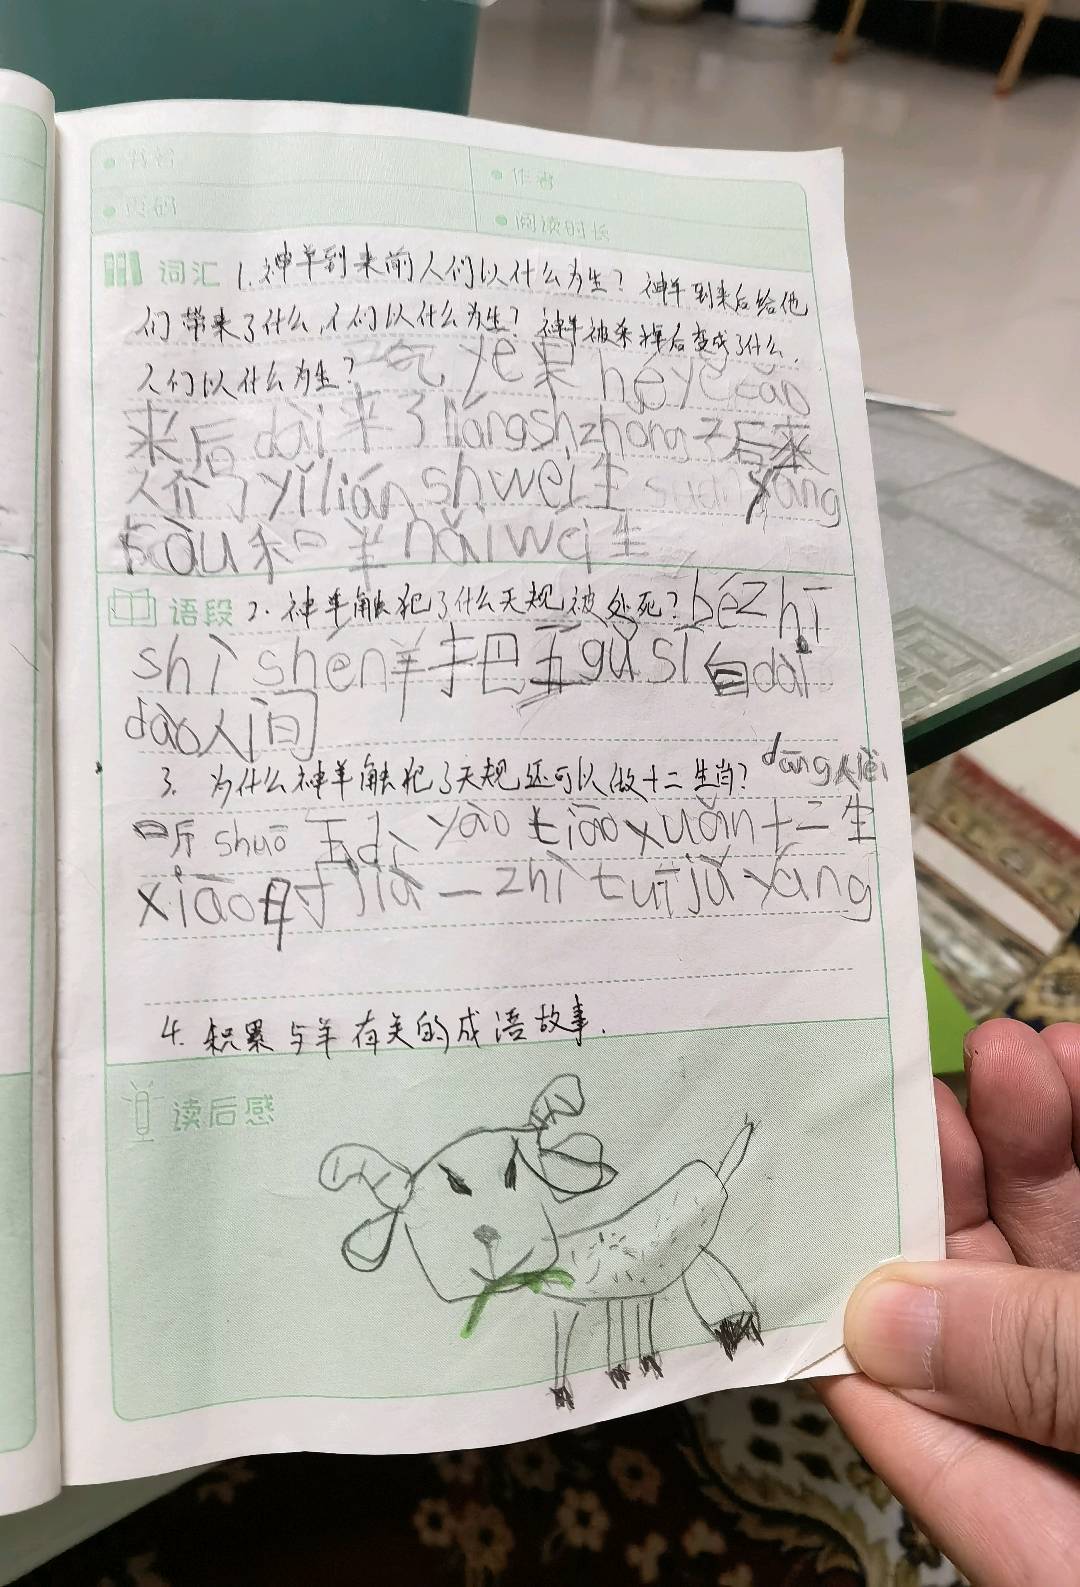 书名
作者
页码
阅读时长
词汇 1.神羊到来前人们以什么为生？神羊到来后给他
们带来了什么,人们以什么为生？神羊被杀掉后变成了什么,
人们以什么为生？
吃 yě果 hé yě cǎo
来后dài来了liángshzhǒng子后来
人们 yǐ liáng shwéi生 yáng
和羊nǎi wéi生
语段 2. 神羊触犯了什么天规被处死？bé zhī
shì shén羊把五gǔ sī自dài
dào人间
3. 为什么神羊触犯了天规还可以做十二生肖？dāng人lèi
一斤shuō 玉dì yào tiāo xuǎn十二生
xiāo时jiā一zhì tuījǔ yáng
4. 积累与羊有关的成语故事.
读后感